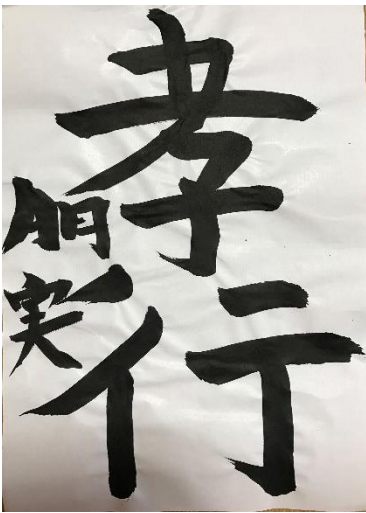 孝行
朋実